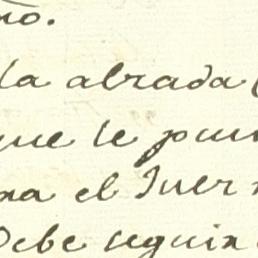 no.
la abrada
que le pun
na el Juer
Debe seguir